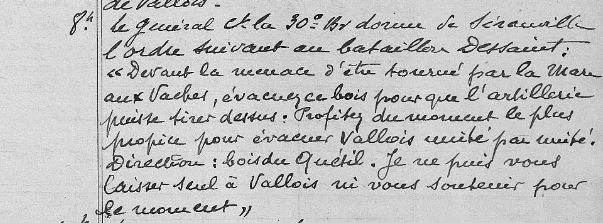 de Vallois.
8.h Le Général Ct la 30e Br donne de Séranville
l'ordre suivant au bataillon Dessaint :
« Devant la menace d'être tourné par la Mare
aux Vaches, évacuez ce bois pour que l'artillerie
puisse tirer dessus. Profitez du moment le plus
propice pour évacuer Vallois unité par unité.
Direction : bois du Quétil. Je ne puis vous
laisser seul à Vallois ni vous soutenir pour
le moment »